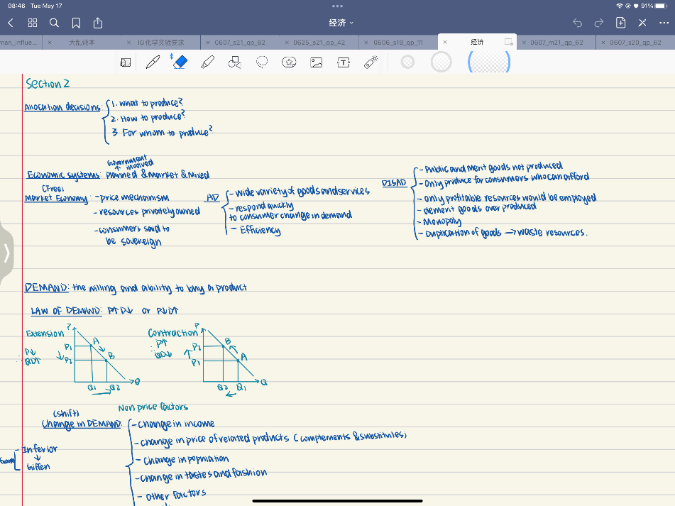 08:46 Tue May 17
91%
经济
0607_s21_qp_62
0625_s21_qp_42
0606_s19_qp_11
经济
0607_m21_qp_62
0607_s20_qp_62
Section 2
Allocation decisions
1. what to produce?
2. How to produce?
3 For whom to produce?
government
involved
Economic systems: planned & market & mixed
(free)
Market Economy: - price mechanism
- resources privately owned
- consumers said to
be sovereign
AD
- wide variety of goods and services
- respond quickly
to consumer change in demand
- Efficiency
DISAD
- Public and merit goods not produced
- Only produce for consumers who can afford
- only profitable resources would be employed
- demerit goods over produced
- Monopoly
- Duplication of goods → waste resources.
DEMAND: the willing and ability to buy a product
LAW OF DEMAND: P↑ D↓ or P↓ D↑
Extension
P↓
QD↑
P
P1
P2
A
B
Q1
Q2
Q
Contraction
: P↑
QD↓
P
P2
P1
B
A
Q2
Q1
Q
Non price factors
(shift)
Change in DEMAND:
- change in income
- change in price of related products (complements & substitutes)
- Change in population
- change in tastes and fashion
- other factors
- Inferior
↓
Giffen